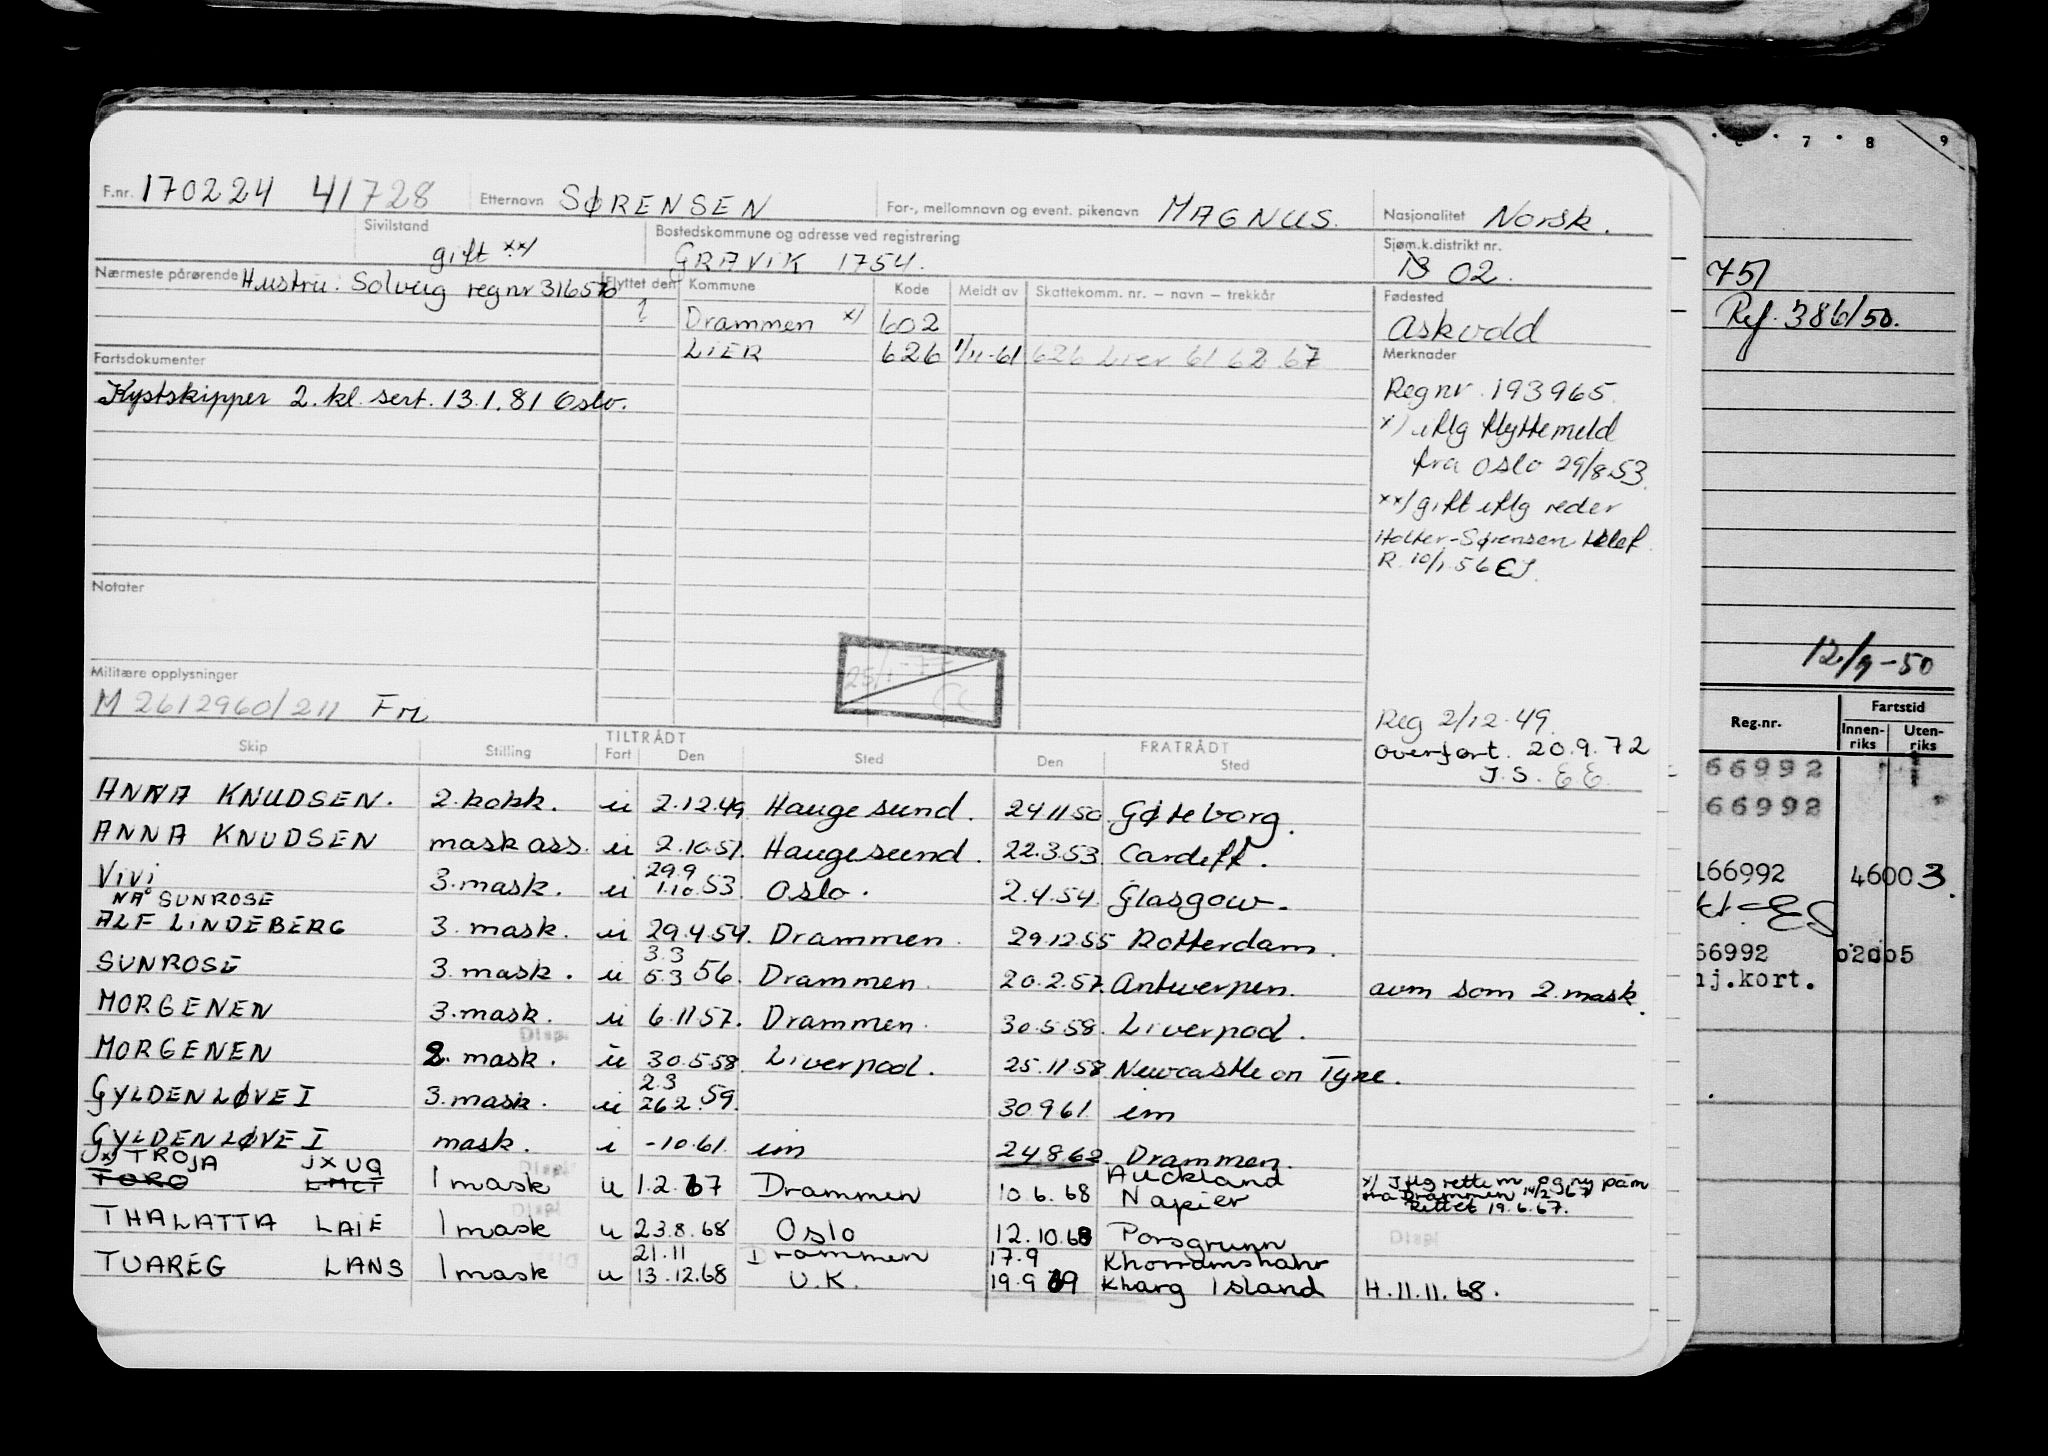 F.nr. 170224 41728 Etternavn SØRENSEN For-, mellomnavn og event. pikenavn MAGNUS. Nasjonalitet Norsk.
Sivilstand gift xx/ Bostedskommune og adresse ved registrering GRAVIK 1754. Sjøm.k.distrikt nr. 02.
Nærmeste pårørende Hustru: Solveig regnr 316570 Flyttet den Kommune Kode Meldt av Skattekomm. nr. – navn – trekkår Fødested
? Drammen x/ 602 Askvold
Fartsdokumenter LIER 626 1/11-61 626 Lier 61 62 67 Merknader
Kystskipper 2. kl. sert. 13.1.81 Oslo. Regnr. 193965.
x/ iflg flyttemeld
fra Oslo 29/8.53.
xx/ gift iflg reder
Holter-Sørensen telef.
R. 10/1.56 EJ.
Notater
25/1-
Militære opplysninger
M 2612960/211 Fri
Reg 2/12-49.
Overført. 20.9.72
J.S. EE.
TILTRÅDT FRATRÅDT
Skip Stilling Fart Den Sted Den Sted
ANNA KNUDSEN. 2. kokk. u 2.12.49 Haugesund. 24.11.50. Gøteborg.
ANNA KNUDSEN mask ass. u 2.10.51. Haugesund. 22.3.53 Cardiff.
29.9
VIVI 3. mask. u 1.10.53 Oslo. 2.4.54 Glasgow.
NÅ SUNROSE
ALF LINDEBERG 3. mask. u 29.4.54. Drammen. 29.12.55 Rotterdam.
3.3
SUNROSE 3. mask. u 5.3 56. Drammen. 20.2.57. Antwerpen. avm som 2. mask.
MORGENEN 3. mask. u 6.11.57. Drammen. 30.5.58. Liverpool.
Displ
MORGENEN 2. mask. u 30.5.58 Liverpool. 25.11.58 Newcastle on Tyne.
2.3
GYLDENLØVE I 3. mask. u 26.2.59. 30.9.61 im
GYLDENLØVE I mask. i -10.61 im 24.8.62. Drammen.
x) TROJA JXUG Displ Auckland
TORO LMCT 1 mask u 1.2.67 Drammen 10.6.68 Napier x/ Iflg rettem og ny påm
fra Drammen 14/2 67
Rettet 19.6.67.
Displ
THALATTA LAIE 1 mask u 23.8.68 Oslo 12.10.68 Porsgrunn Displ
21.11 Drammen 17.9 Khorramshahr
TUAREG LANS 1 mask u 13.12.68 U.K. 19.9 69 Kharg Island H.11.11.68.
7 8 9
751
Ref. 386/50.
12/9-50
Reg.nr. Fartstid
Innen-riks Uten-riks
66992
66992
166992 46003.
66992 02005
nj.kort.